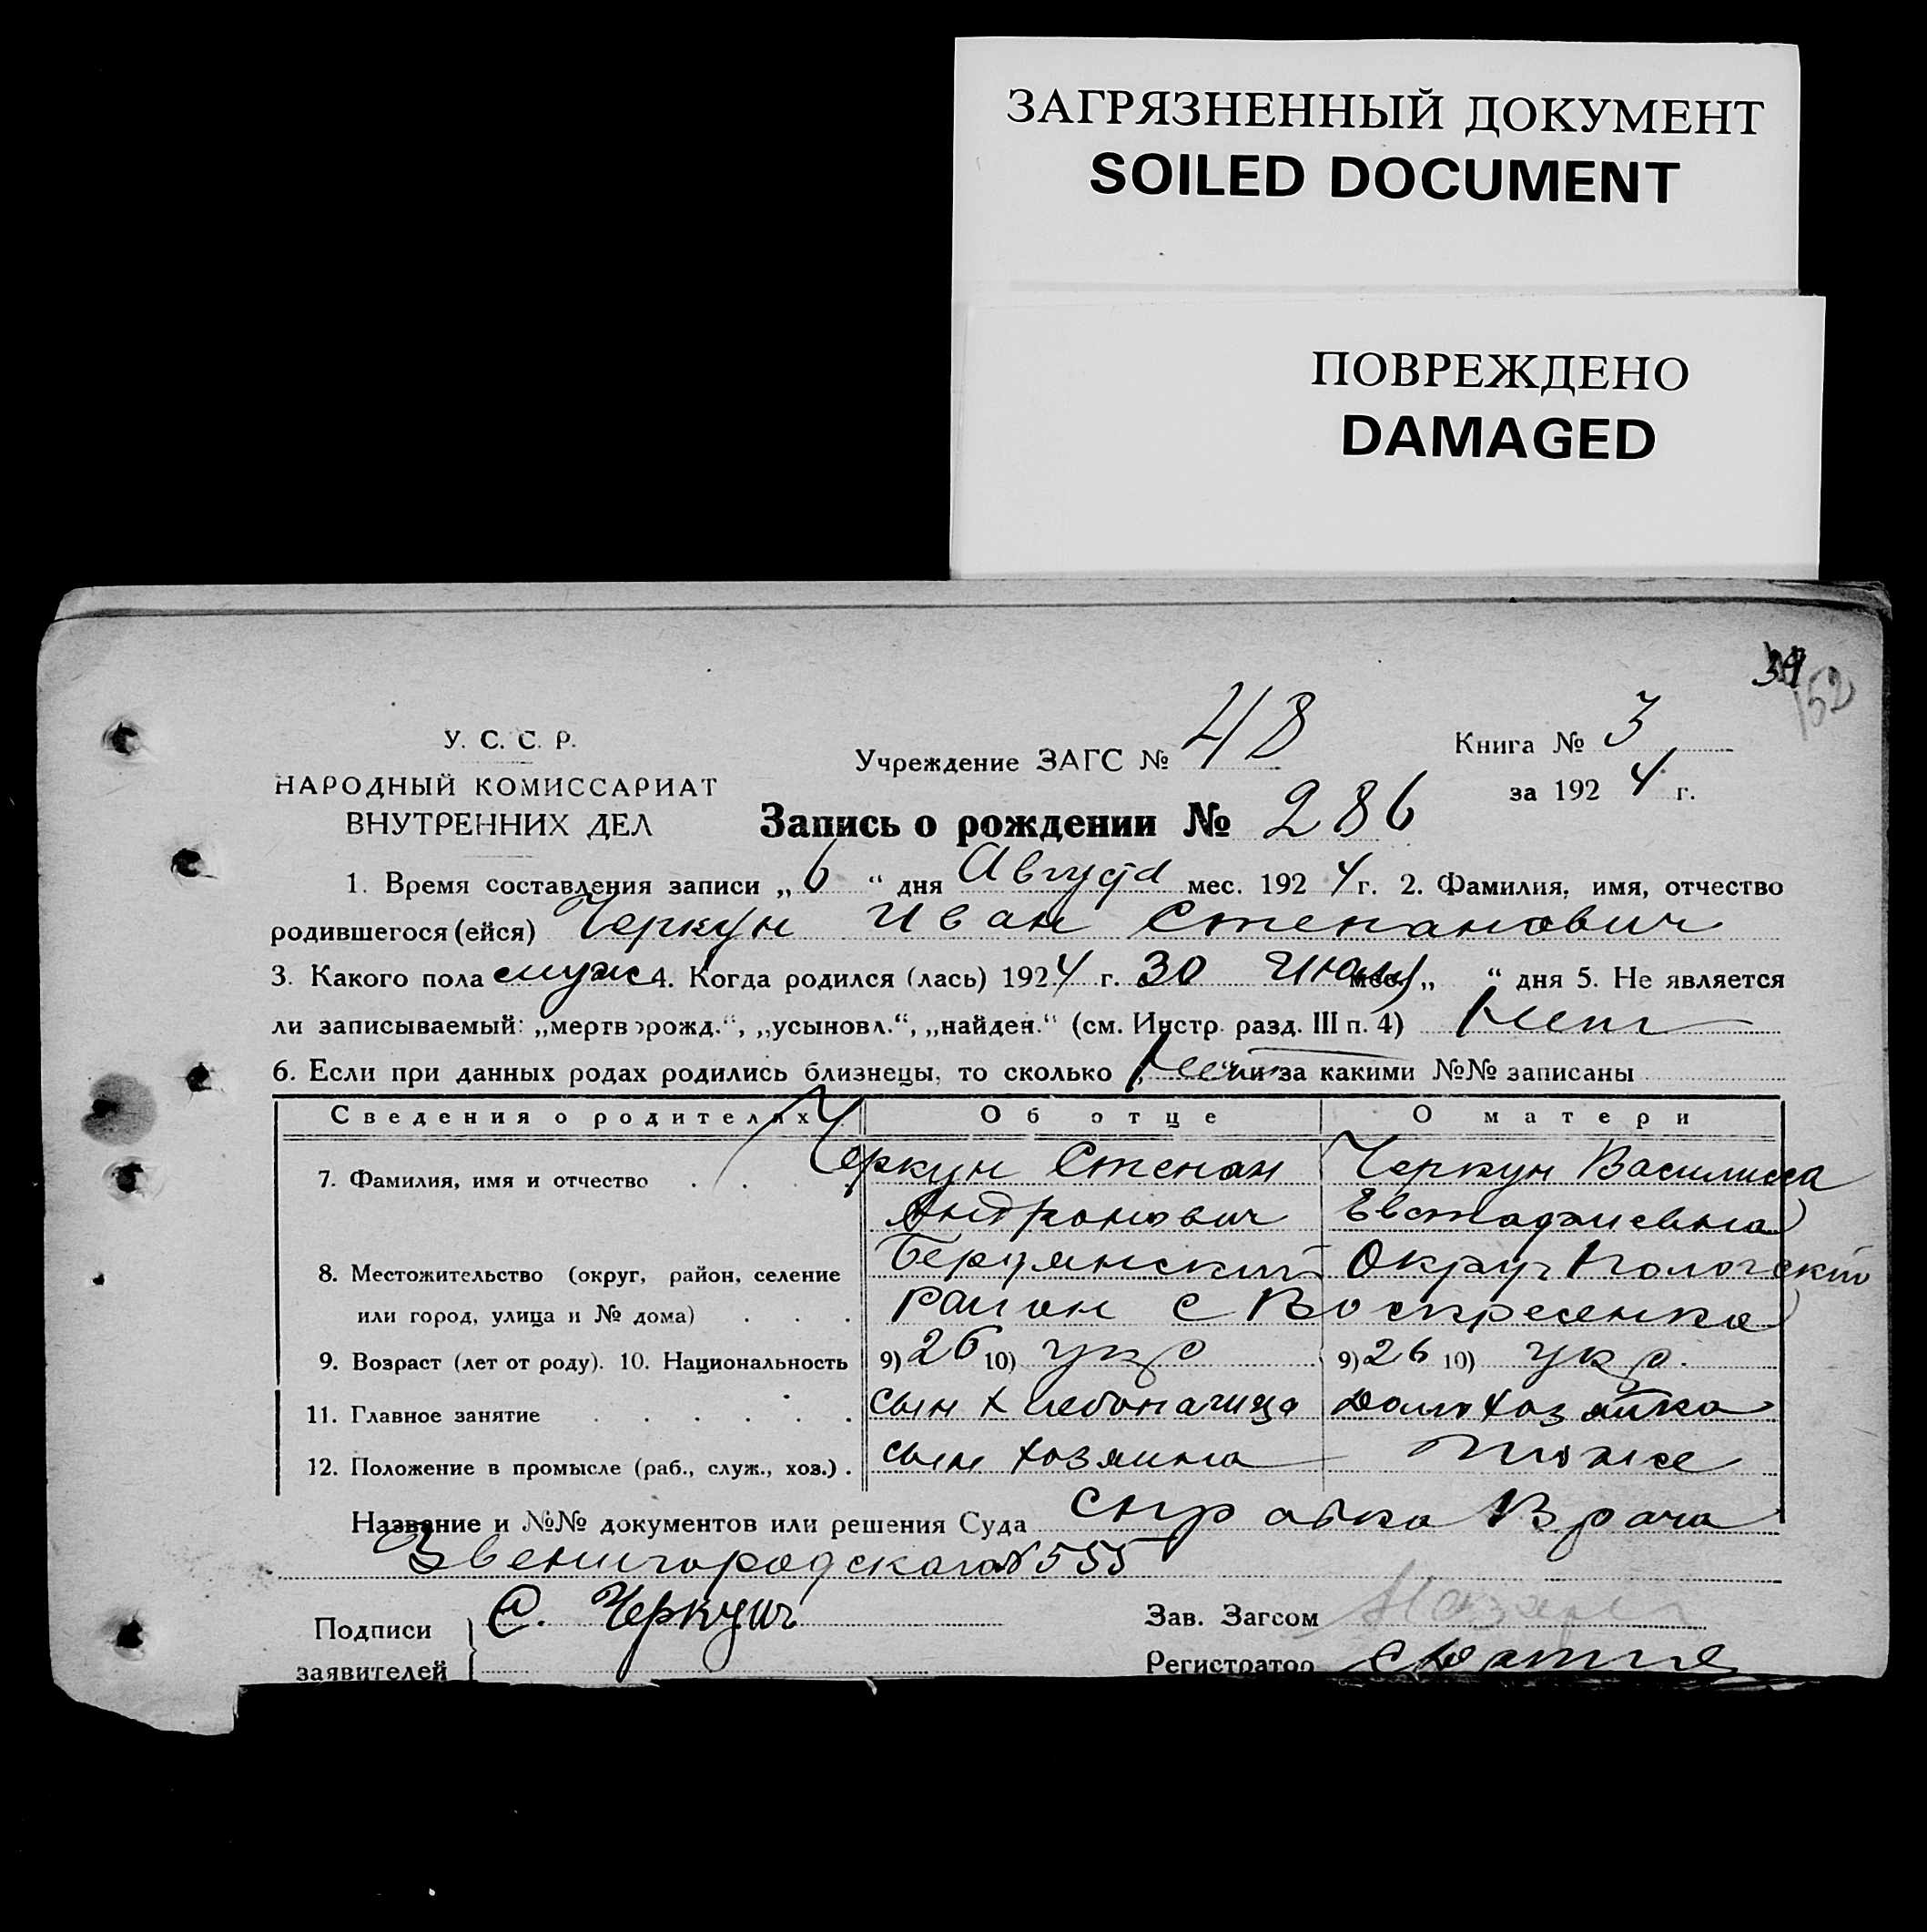 ЗАГРЯЗНЕННЫЙ ДОКУМЕНТ
SOILED DOCUMENT
ПОВРЕЖДЕНО
DAMAGED
39
152
У. С. С. Р.
НАРОДНЫЙ КОМИССАРИАТ
ВНУТРЕННИХ ДЕЛ
Учреждение ЗАГС № 48
Книга № 3
за 1924 г.
Запись о рождении № 286
1. Время составления записи „6“ дня Августа мес. 1924 г. 2. Фамилия, имя, отчество
родившегося (ейся) Черкун Иван Степанович
3. Какого пола муж 4. Когда родился (лась) 1924 г. 30 Июля мес. „ “ дня 5. Не является
ли записываемый: „мертворожд.“, „усыновл.“, „найден.“ (см. Инстр. разд. III п. 4) Нет
6. Если при данных родах родились близнецы, то сколько Нет и за какими №№ записаны
Сведения о родителях Об отце О матери
7. Фамилия, имя и отчество Черкун Степан Черкун Василиса
Андронович Евстафиевна
8. Местожительство (округ, район, селение Бердянский Округ Пологский
или город, улица и № дома) район с Воскресенка
9. Возраст (лет от роду). 10. Национальность 9) 26 10) укр 9) 26 10) укр.
11. Главное занятие сын хлебопашца домохозяйка
12. Положение в промысле (раб., служ., хоз.) сын хозяина тоже
Название и №№ документов или решения Суда справка Врача
Звенигородскаго № 555
Подписи С. Черкун
заявителей
Зав. Загсом
Регистратор